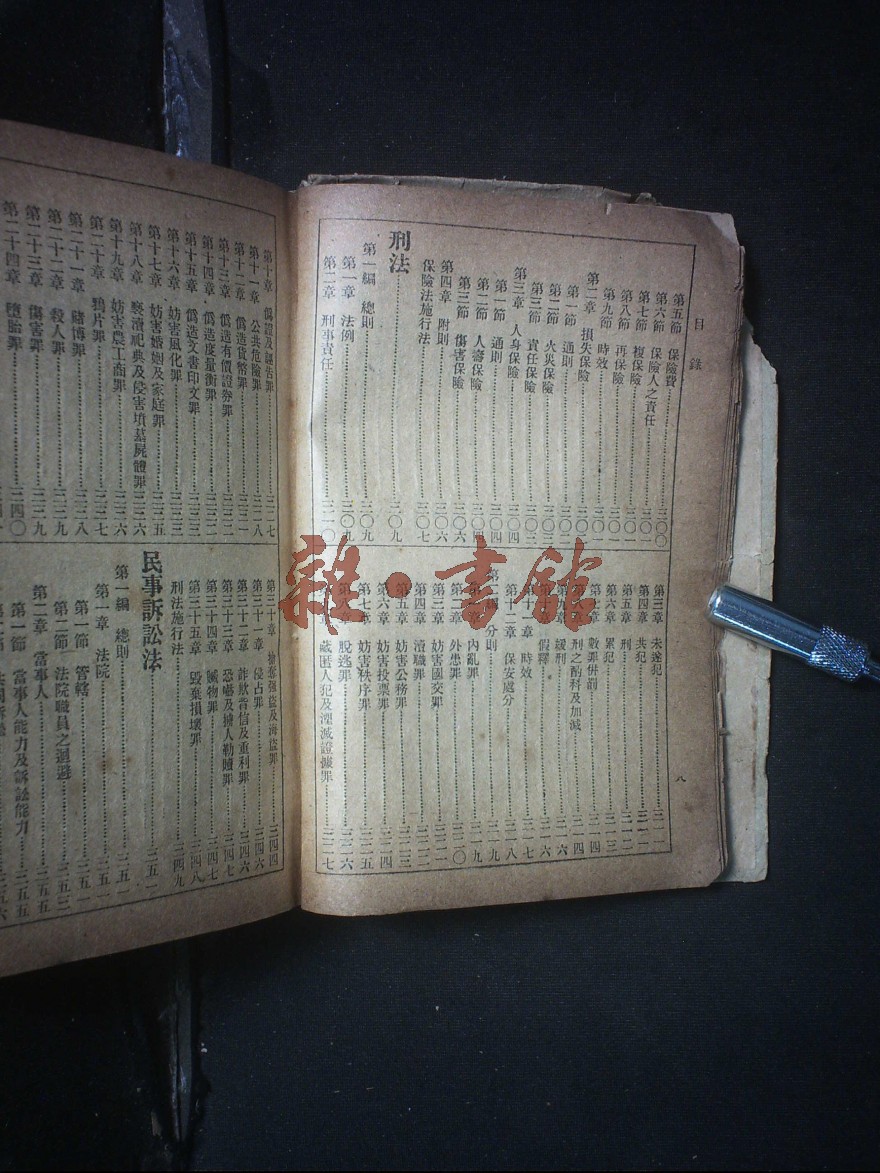 目錄
第五節 保險費……二〇〇
第六節 保險人之責任……二〇〇
第七節 複保險
第八節 再保險
第九節 時效
第二章 損失保險
第一節 通則
第二節 火災保險
第三節 責任保險
第三章 人身保險
第一節 通則
第二節 人壽保險
第三節 傷害保險
第四章 附則
保險法施行法
刑法……二〇九
第一編 總則……二〇九
第一章 法例……二〇九
第二章 刑事責任……二一〇
第三章 未遂犯
第四章 共犯
第五章 刑
第六章 累犯
第七章 數罪併罰
第八章 刑之酌科及加減
第九章 緩刑
假釋
第十一章 時效
第十二章 保安處分
第二編 分則
第一章 內亂罪
第二章 外患罪
第三章 妨害國交罪
第四章 瀆職罪
第五章 妨害公務罪
第六章 妨害投票罪
第七章 妨害秩序罪
第八章 脫逃罪
藏匿人犯及湮滅證據罪……二二七
八
第十章 偽證及誣告罪
第十一章 公共危險罪
第十二章 偽造貨幣罪
第十三章 偽造有價證券罪
第十四章 偽造度量衡罪
第十五章 偽造文書印文罪
第十六章 妨害風化罪
第十七章 妨害婚姻及家庭罪
第十八章 褻瀆祀典及侵害墳墓屍體罪
第十九章 妨害農工商罪
第二十章 鴉片罪
第二十一章 賭博罪
第二十二章 殺人罪
第二十三章 傷害罪
第二十四章 墮胎罪
第三十章 搶奪強盜及海盜罪……二四四
第三十一章 侵占罪……二四六
第三十二章 詐欺背信及重利罪……二四六
第三十三章 恐嚇及擄人勒贖罪……二四七
第三十四章 贓物罪……二四七
第三十五章 毀棄損壞罪……二四八
刑法施行法……二四九
民事訴訟法……二五一
第一編 總則……二五一
第一章 法院……二五一
第一節 管轄……二五一
第二節 法院職員之迴避……二五三
第二章 當事人……二五五
第一節 當事人能力及訴訟能力……二五五
雜·書館